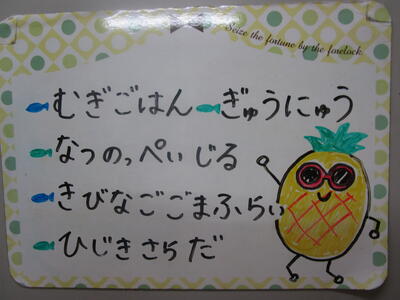 Seize the fortune by the forelock.
むぎごはん ぎゅうにゅう
なつのっぺいじる
きびなごごまふらい
ひじきさらだ